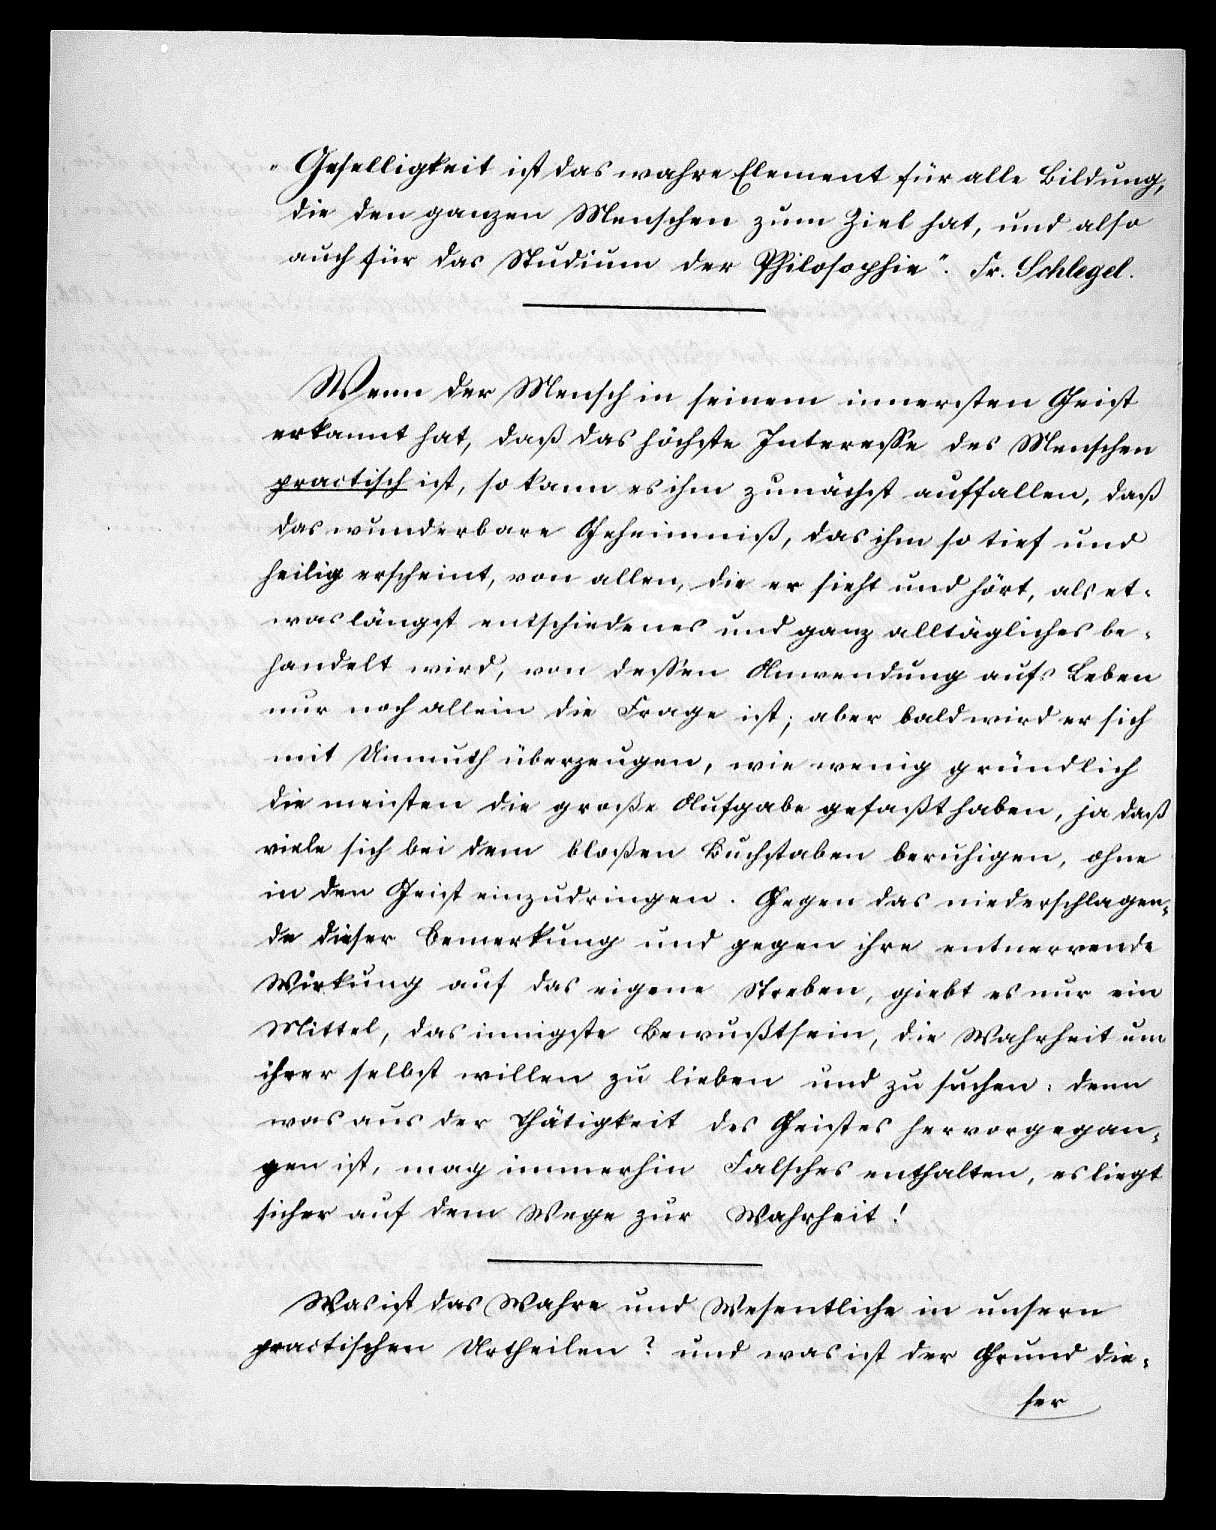 „Geselligkeit ist das wahre Element für alle Bildung,
die den ganzen Menschen zum Ziel hat, und also
auch für das Studium der Philosophie“. Fr. Schlegel.
Wenn der Mensch in seinem innersten Geist
erkannt hat, daß das höchste Interesse des Menschen
practisch ist, so kann es ihm zunächst auffallen, daß
das wunderbare Geheimniß, das ihm so tief und
heilig erscheint, von allen, die er sieht und hört, als et-
was längst entschiedenes und ganz alltägliches be-
handelt wird, von dessen Anwendung aufs Leben
nur noch allein die Frage ist; aber bald wird er sich
mit Unmuth überzeugen, wie wenig gründlich
die meisten die große Aufgabe gefaßt haben, ja daß
viele sich bei dem bloßen Buchstaben beruhigen, ohne
in den Geist einzudringen. Gegen das niederschlagen-
de dieser Bemerkung und gegen ihre entnervende
Wirkung auf das eigene Streben, giebt es nur ein
Mittel, das innigste Bewußtsein, die Wahrheit um
ihrer selbst willen zu lieben und zu suchen: denn
was aus der Thätigkeit des Geistes hervorgegan-
gen ist, mag immerhin Falsches enthalten, es liegt
sicher auf dem Wege zur Wahrheit!
Was ist das Wahre und Wesentliche in unsern
practischen Urtheilen? und was ist der Grund die-
ser